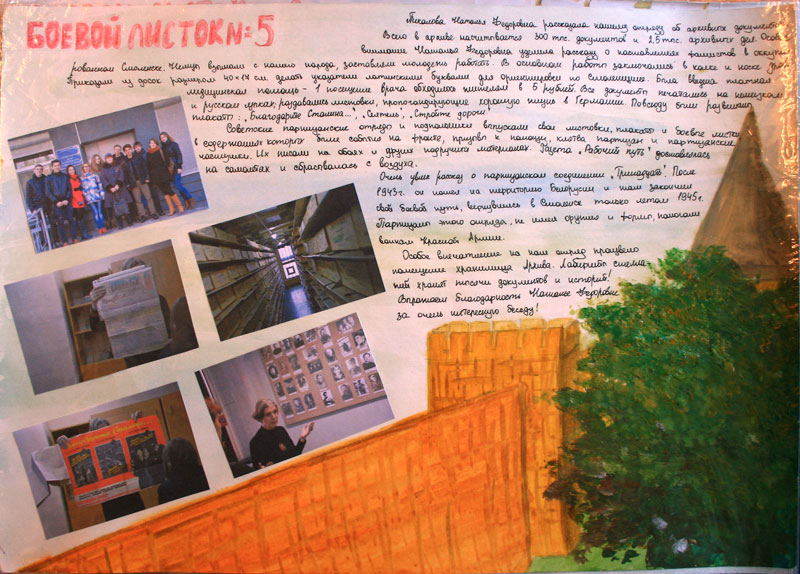 БОЕВОЙ ЛИСТОК № 5
Наталья Федоровна, рассказала нашему отряду об архивных документах.
Всего в архиве насчитывается 300 тыс. документов и 2,5 тыс. архивных дел. Особое
внимание Наталья Федоровна уделила рассказу о наставлениях фашистов в оккупи-
рованном Смоленске. Немцы взымали с нашего народа, заставляли молодежь работать. В основном работы заключались в колке и носке дров.
Приказали из досок размером 40×14 см. делать указатели латинскими буквами для ориентировки по Смоленщине. Была введена платная
медицинская помощь - 1 посещение врача обходилось жителям в 5 рублей. Все документы печатались на немецком
и русском языках, раздавались листовки, пропагандирующие хорошую жизнь в Германии. Повсюду были развешаны
плакаты: „Благодарите Сталина...", „Сеятель", „Стройте дороги".
Советские партизанские отряды и подпольщики выпускали свои листовки, плакаты и боевые листки,
в содержании которых были события на фронте, призывы к помощи, клятва партизан и партизанские
частушки. Их писали на обоях и других подручных материалах. Газета „Рабочий путь" доставлялась
на самолетах и сбрасывалась с воздуха.
Очень увлек рассказ о партизанском соединении „Тринадцать". После
1943г. он пошел на территорию Белоруссии и там закончил
свой боевой путь, вернувшись в Смоленск только летом 1945г.
Партизаны этого отряда, не имея оружия и формы, помогали
воинам Красной Армии.
Особое впечатление на наш отряд произвело
помещение хранилища Архива. Лабиринты стелла-
жей хранят тысячи документов и историй!
Выражаем благодарность Наталье Федоровне
за очень интересную беседу!